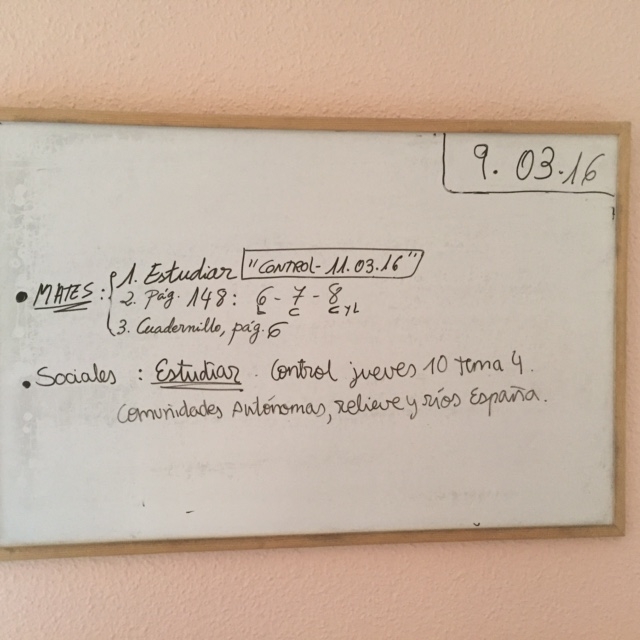 9.03.16
• MATES: 1. Estudiar "CONTROL- 11.03.16"
2. Pág. 148: 6 - 7 - 8
L C C y L
3. Cuadernillo, pág. 6
• Sociales : Estudiar. Control jueves 10 Tema 4.
Comunidades Autónomas, relieve y ríos España.